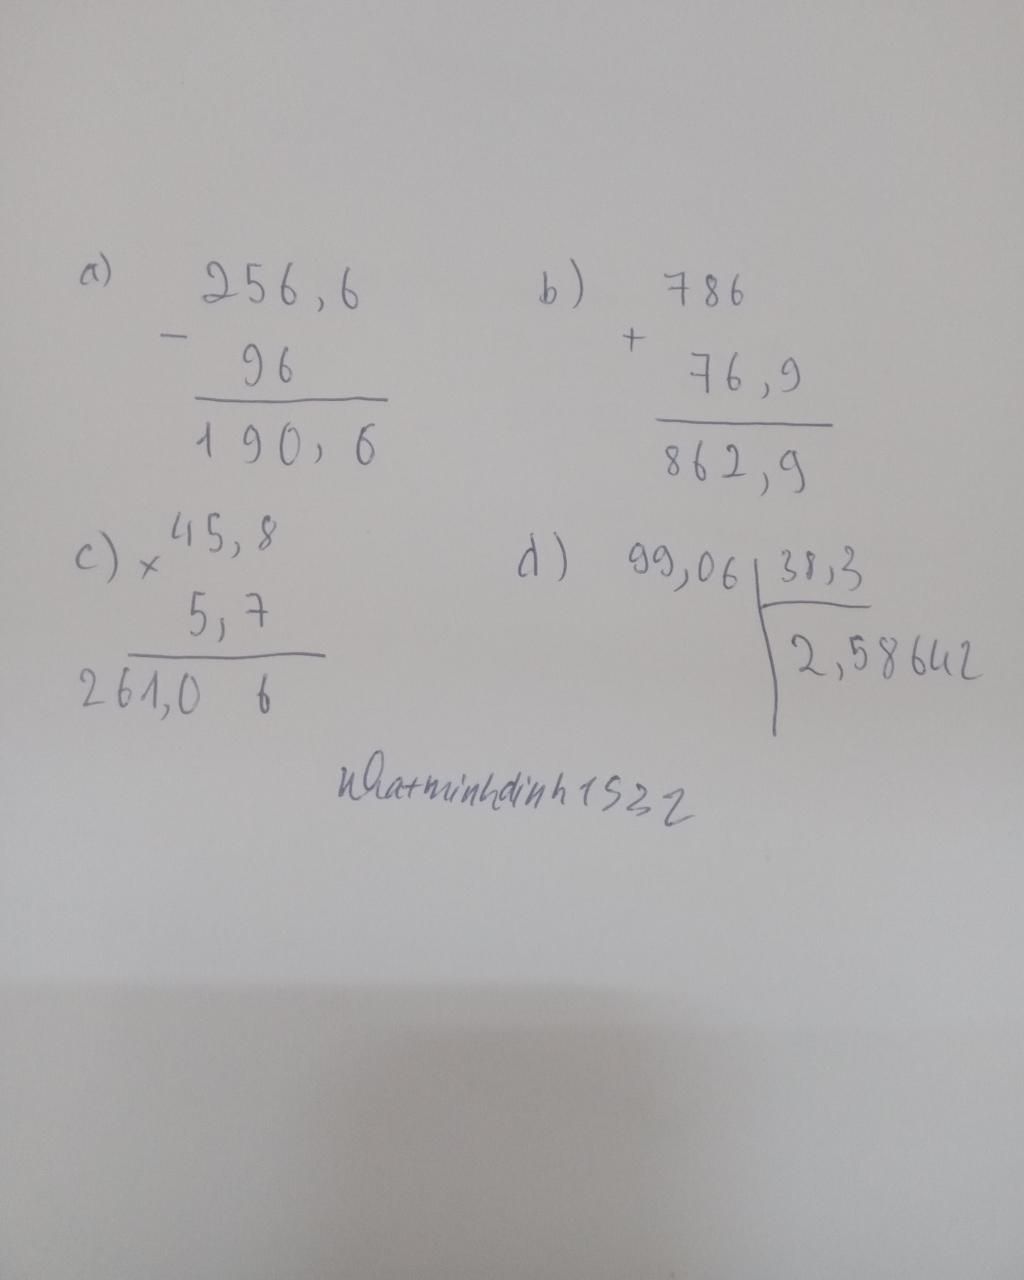 a) 256,6
-
96
190,6
b) 786
+
76,9
862,9
c) × 45,8
5,7
261,0 6
d) 99,06 38,3
2,58642
nhatminhdinh1532